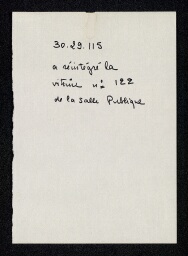 30.29.115
a réintégré la
vitrine n: 122
de la salle Publique